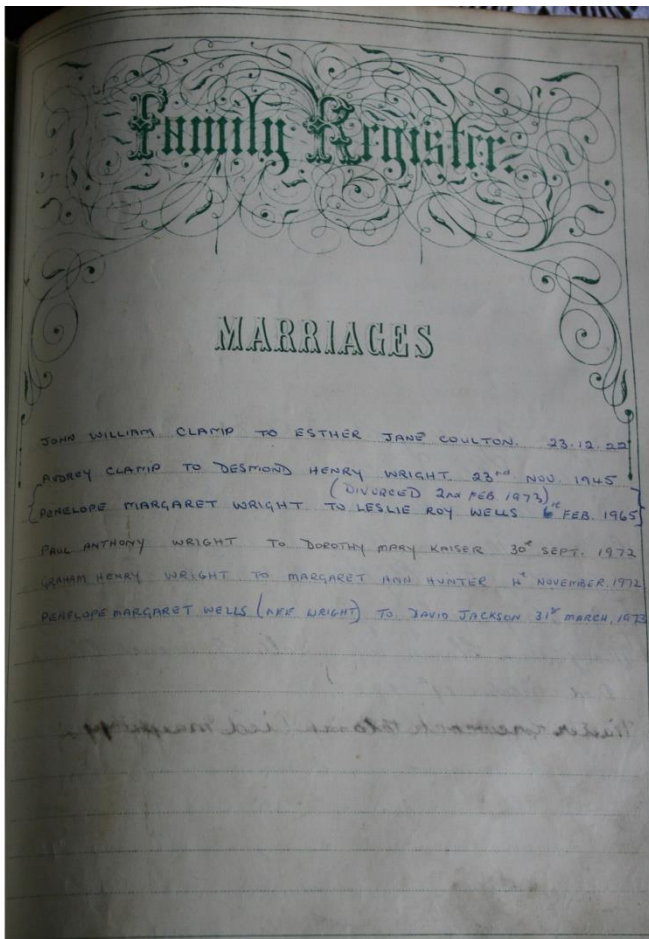 Family Register.
MARRIAGES
JOHN WILLIAM CLAMP TO ESTHER JANE COULTON. 23.12.22
AUDREY CLAMP TO DESMOND HENRY WRIGHT 23rd NOV. 1945
(DIVORCED 2nd FEB 1973)
PENELOPE MARGARET WRIGHT TO LESLIE ROY WELLS FEB. 1965
PAUL ANTHONY WRIGHT TO DOROTHY MARY KAISER 30th SEPT. 1972
GRAHAM HENRY WRIGHT TO MARGARET ANN HUNTER 4th NOVEMBER, 1972
PENELOPE MARGARET WELLS (NEE WRIGHT) TO DAVID JACKSON 31st MARCH, 1973